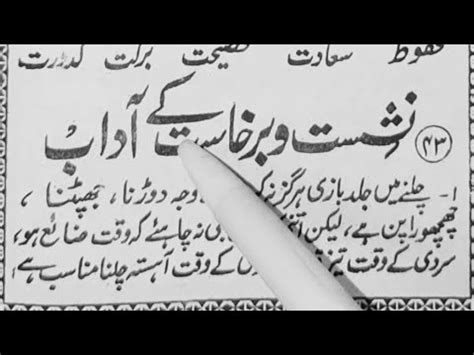 محفوظ سعادت نصیحت برکت کدورت
(۴۳) نشست و برخاست کے آداب
۱۔ چلنے میں جلد بازی ہرگز نہ کرو وجہ دوڑنا، جھپٹنا،
چھچھورا پن ہے، لیکن اتنی بھی نہ چاہئے کہ وقت ضائع ہو،
سردی کے وقت تیز کے وقت آہستہ چلنا مناسب ہے